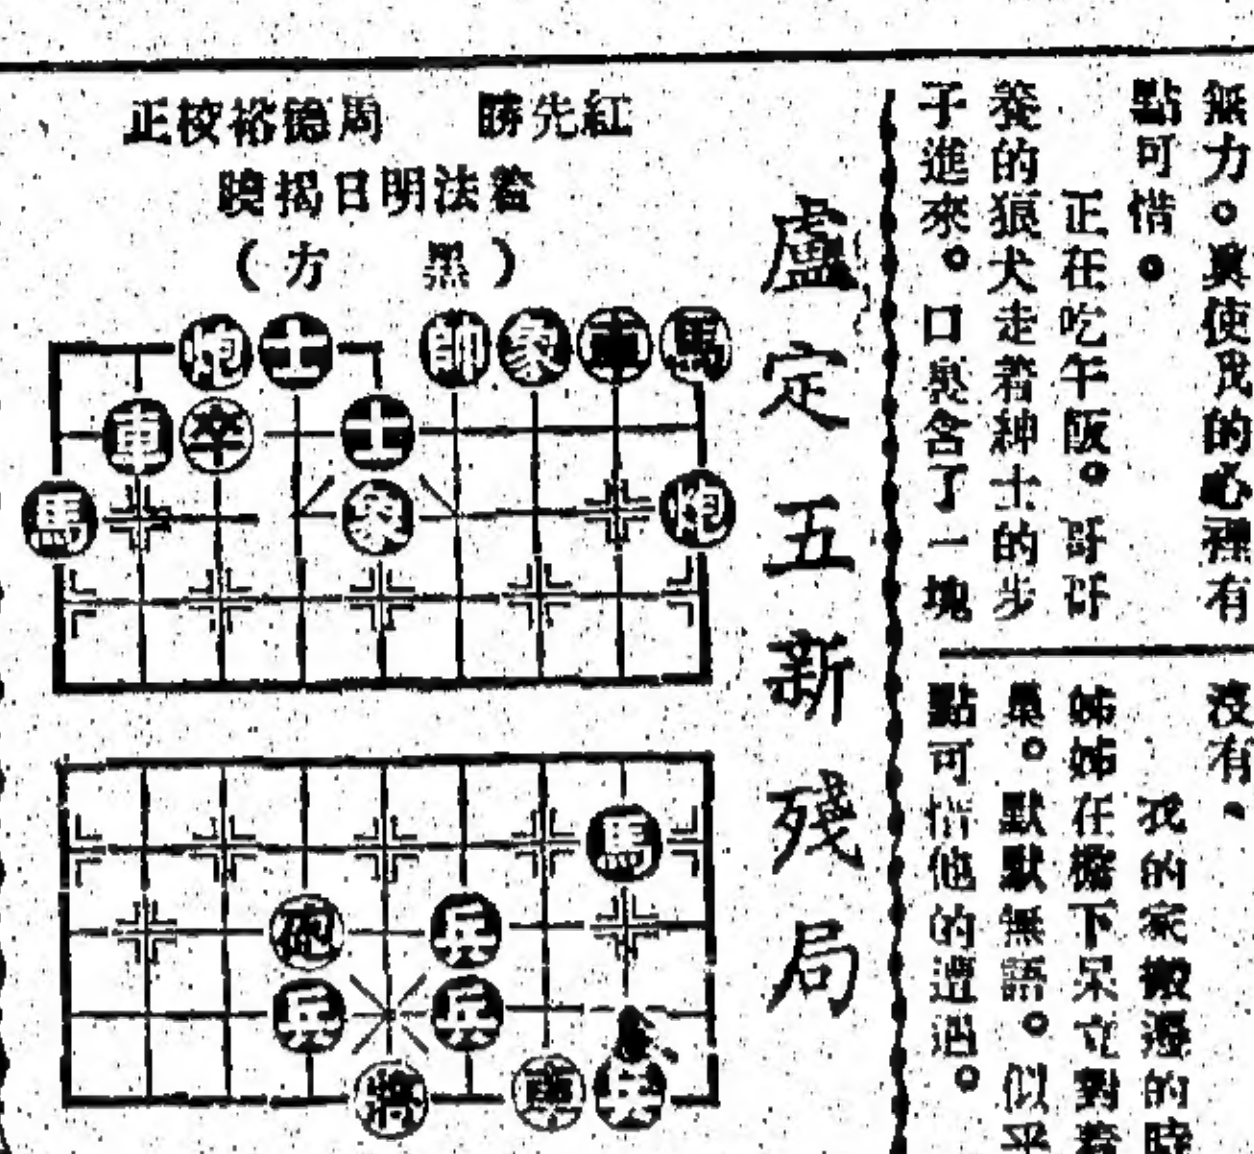 無力。眞使我的心裡有
點可惜。
正在吃午飯。哥哥
養的狼犬走着紳士的步
子進來。口裏含了一塊
沒有、
我的家搬遷的時
姊姊在檐下呆立對着
臬。默默無語。似乎
點可惜他的遭遇。
盧定五新殘局
紅先勝 周德裕校正
着法明日揭曉
（黑方）
炮 士 帥 象 車 馬
車 卒 士
馬 象 炮
馬
砲 兵
兵 兵
將 車 兵